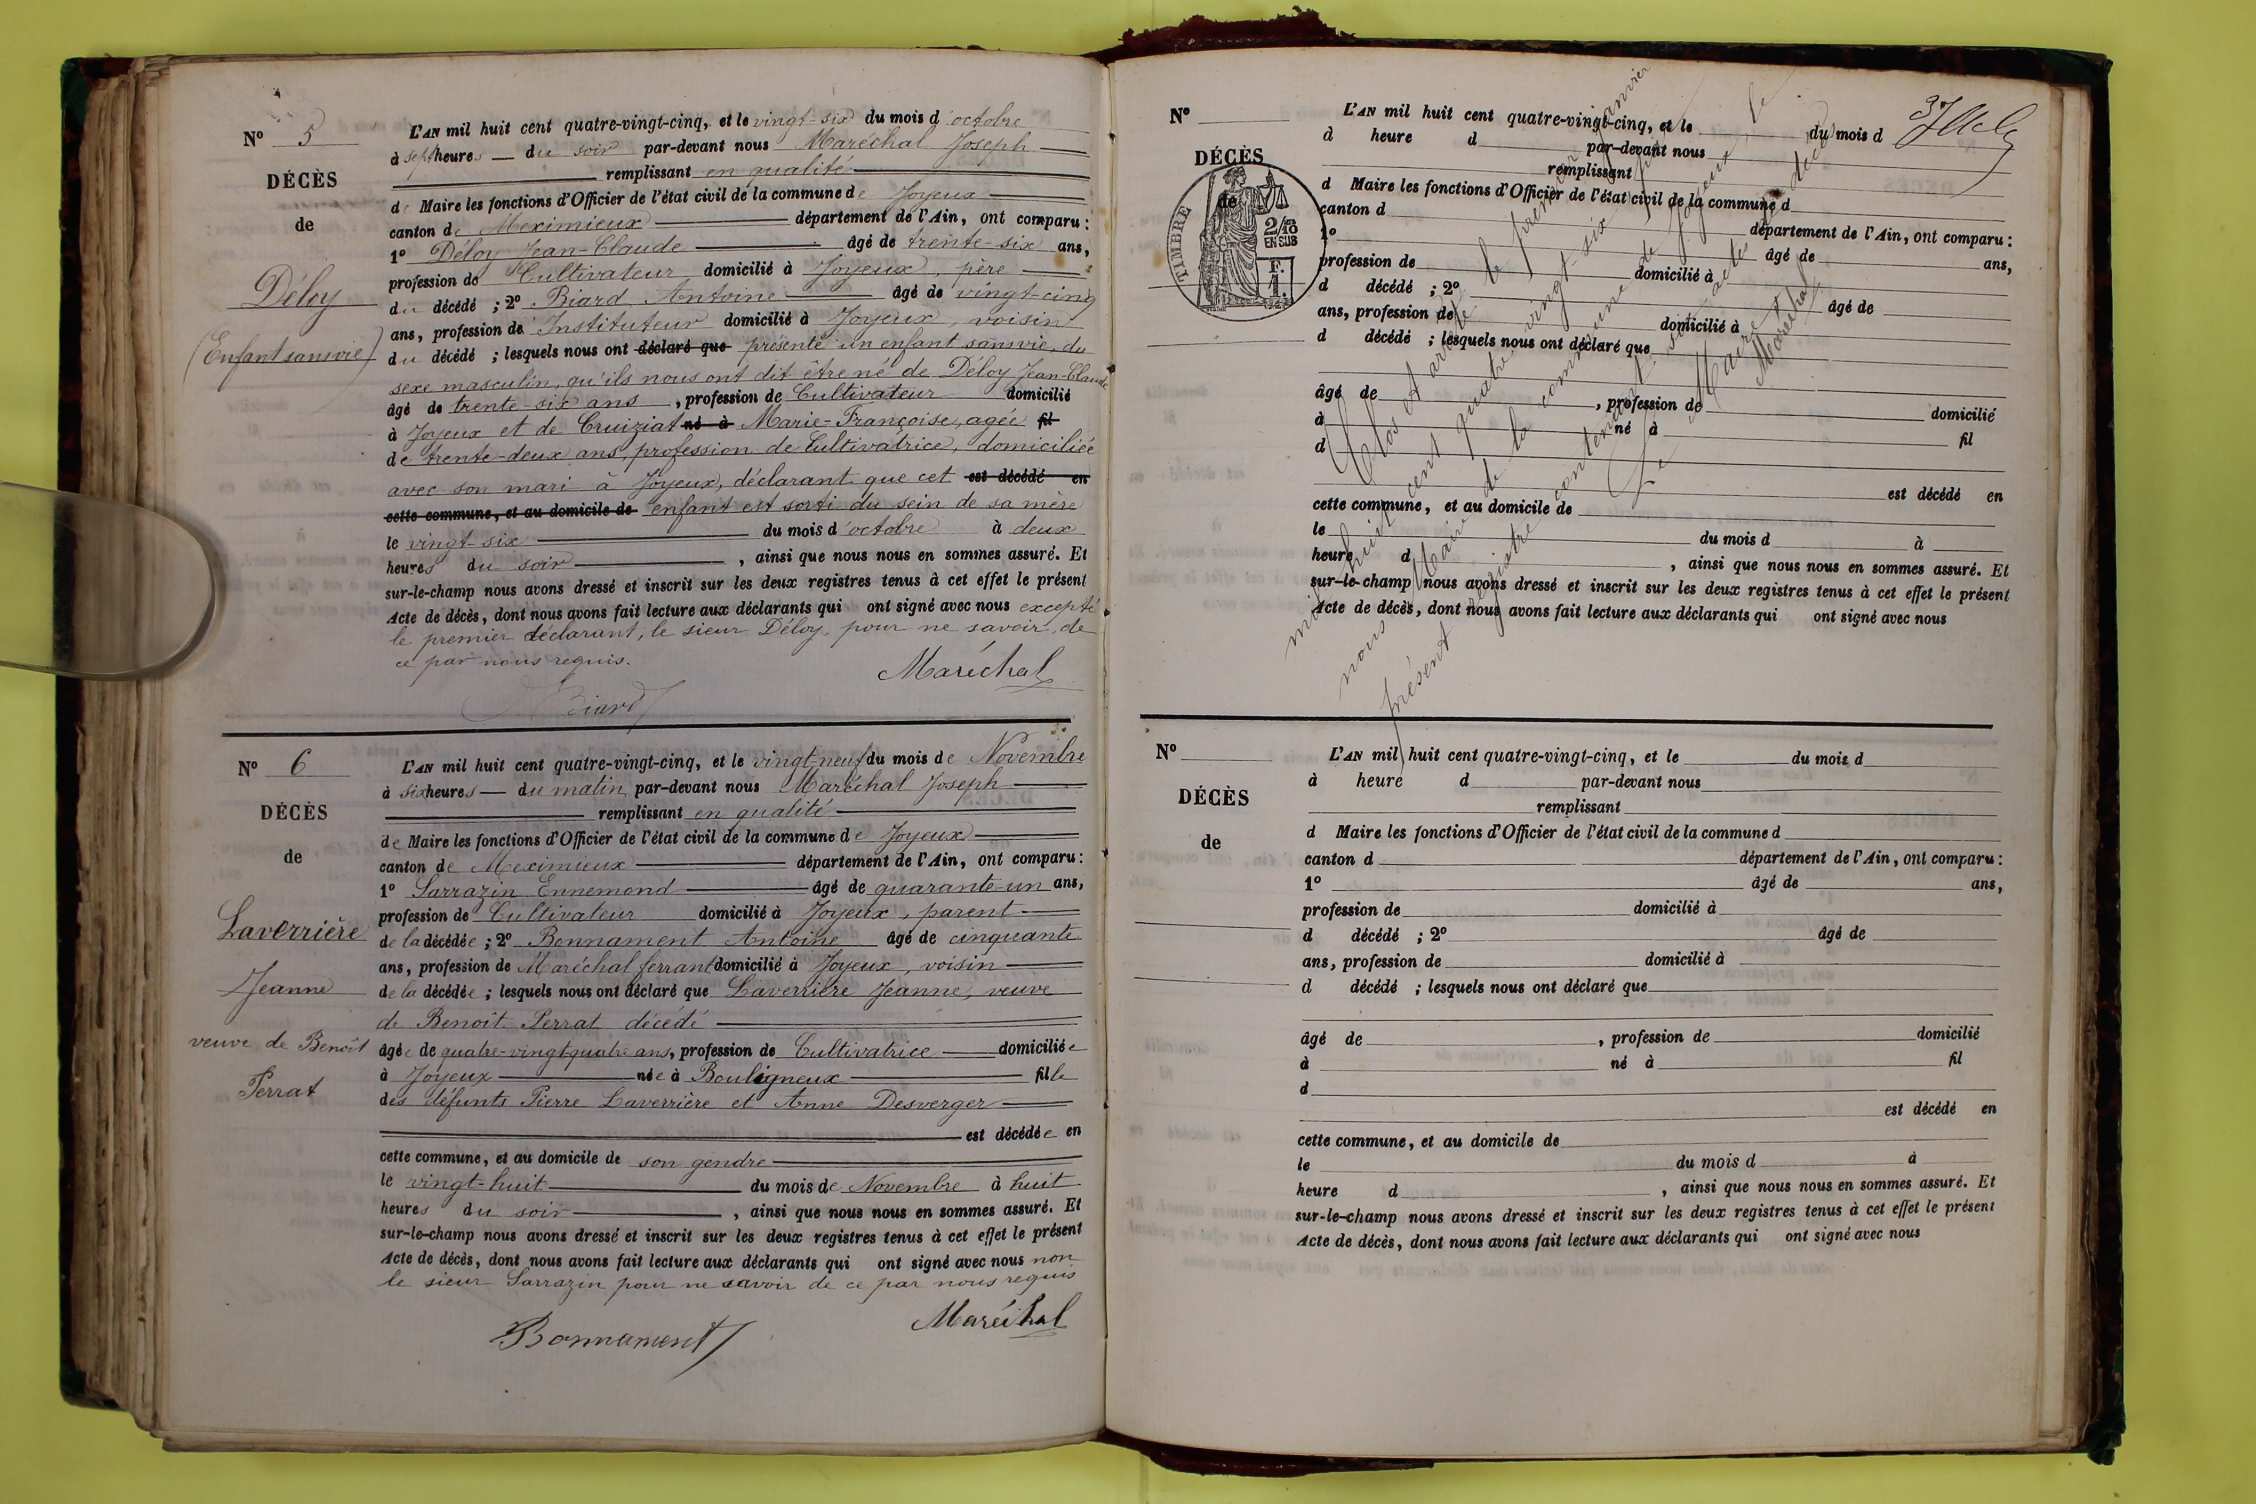 N° 5
DÉCÈS
de
Déloy
(Enfant sans vie)
L'AN mil huit cent quatre-vingt-cinq, et le vingt-six du mois d'octobre
à sept heures du soir par-devant nous Maréchal Joseph
remplissant en qualité
de Maire les fonctions d'Officier de l'état civil de la commune de Joyeux
canton de Meximieux département de l'Ain, ont comparu :
1° Déloy Jean-Claude âgé de trente-six ans,
profession de Cultivateur domicilié à Joyeux, père
du décédé ; 2° Biard Antoine âgé de vingt-cinq
ans, profession de Instituteur domicilié à Joyeux, voisin
du décédé ; lesquels nous ont déclaré que présenté un enfant sans vie, du
sexe masculin, qu'ils nous ont dit être né de Déloy Jean-Claude
âgé de trente-six ans, profession de Cultivateur domicilié
à Joyeux et de Cruiziat né à Marie-Françoise, agée fil
de trente-deux ans, profession de Cultivatrice, domiciliée
avec son mari à Joyeux, déclarant que cet est décédé en
cette commune, et au domicile de enfant est sorti du sein de sa mère
le vingt-six du mois d'octobre à deux
heures du soir, ainsi que nous nous en sommes assuré. Et
sur-le-champ nous avons dressé et inscrit sur les deux registres tenus à cet effet le présent
Acte de décès, dont nous avons fait lecture aux déclarants qui ont signé avec nous excepté
le premier déclarant, le sieur Déloy, pour ne savoir, de
ce par nous requis.
Maréchal
Biard
N° 6
DÉCÈS
de
Laverrière
Jeanne
veuve de Benoît
Perrat
L'AN mil huit cent quatre-vingt-cinq, et le vingt-neuf du mois de Novembre
à six heures du matin par-devant nous Maréchal Joseph
remplissant en qualité
de Maire les fonctions d'Officier de l'état civil de la commune de Joyeux
canton de Meximieux département de l'Ain, ont comparu :
1° Sarrazin Ennemond âgé de quarante-un ans,
profession de Cultivateur domicilié à Joyeux, parent
de la décédée ; 2° Bonnament Antoine âgé de cinquante
ans, profession de Maréchal ferrant domicilié à Joyeux, voisin
de la décédée ; lesquels nous ont déclaré que Laverrière Jeanne, veuve
de Benoît Perrat décédé
âgée de quatre-vingt-quatre ans, profession de Cultivatrice domiciliée
à Joyeux née à Bouligneux fille
des défunts Pierre Laverrière et Anne Desverger
est décédée en
cette commune, et au domicile de son gendre
le vingt-huit du mois de Novembre à huit
heures du soir, ainsi que nous nous en sommes assuré. Et
sur-le-champ nous avons dressé et inscrit sur les deux registres tenus à cet effet le présent
Acte de décès, dont nous avons fait lecture aux déclarants qui ont signé avec nous non
le sieur Sarrazin pour ne savoir de ce par nous requis
Maréchal
Bonnament
N°
DÉCÈS
de
TIMBRE
2/10
EN SUS
F.
1.
L'AN mil huit cent quatre-vingt-cinq, et le du mois d
à heure d par-devant nous
remplissant
d Maire les fonctions d'Officier de l'état civil de la commune d
canton d département de l'Ain, ont comparu :
1° âgé de ans,
profession de domicilié à
d décédé ; 2° âgé de
ans, profession de domicilié à
d décédé ; lesquels nous ont déclaré que
âgé de , profession de domicilié
à né à fil
d
est décédé en
cette commune, et au domicile de
le du mois d à
heure d , ainsi que nous nous en sommes assuré. Et
sur-le-champ nous avons dressé et inscrit sur les deux registres tenus à cet effet le présent
Acte de décès, dont nous avons fait lecture aux déclarants qui ont signé avec nous
Clos et arrêté le premier janvier
mil huit cent quatre-vingt-six
nous Maire de la commune de Joyeux, le
présent registre contenant six actes de décès
Le Maire
Maréchal
N°
DÉCÈS
de
L'AN mil huit cent quatre-vingt-cinq, et le du mois d
à heure d par-devant nous
remplissant
d Maire les fonctions d'Officier de l'état civil de la commune d
canton d département de l'Ain, ont comparu :
1° âgé de ans,
profession de domicilié à
d décédé ; 2° âgé de
ans, profession de domicilié à
d décédé ; lesquels nous ont déclaré que
âgé de , profession de domicilié
à né à fil
d
est décédé en
cette commune, et au domicile de
le du mois d à
heure d , ainsi que nous nous en sommes assuré. Et
sur-le-champ nous avons dressé et inscrit sur les deux registres tenus à cet effet le présent
Acte de décès, dont nous avons fait lecture aux déclarants qui ont signé avec nous